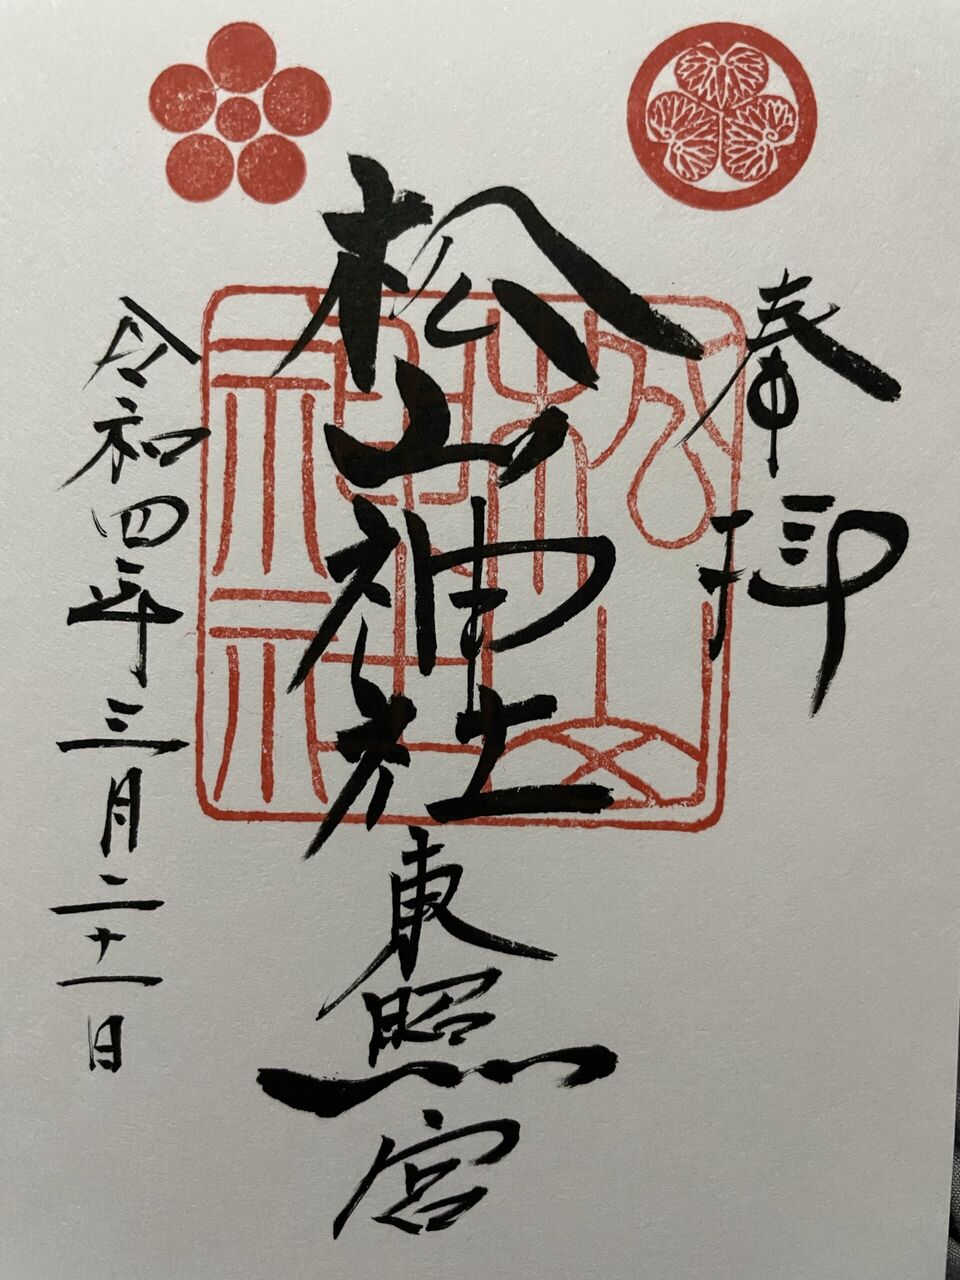 奉拝
松山神社
東照宮
令和四年三月二十一日